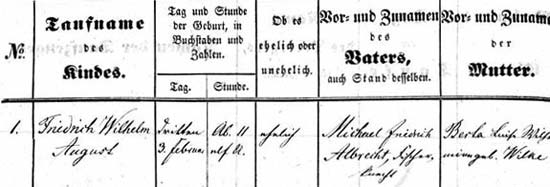 No.
Taufname
des
Kindes.
Tag und Stunde
der Geburt, in
Buchstaben und
Zahlen.
Tag.
Stunde.
Ob es
ehelich oder
unehelich.
Vor- und Zunamen
des
Vaters,
auch Stand desselben.
Vor- und Zuname
der
Mutter.
1.
Friedrich Wilhelm
August
Dritten
3. Februar
Ab. 11
elf U.
ehelich
Michael Friedrich
Albrecht, Fischer-
knecht
Luise Wilhel
mine geb. Wilke